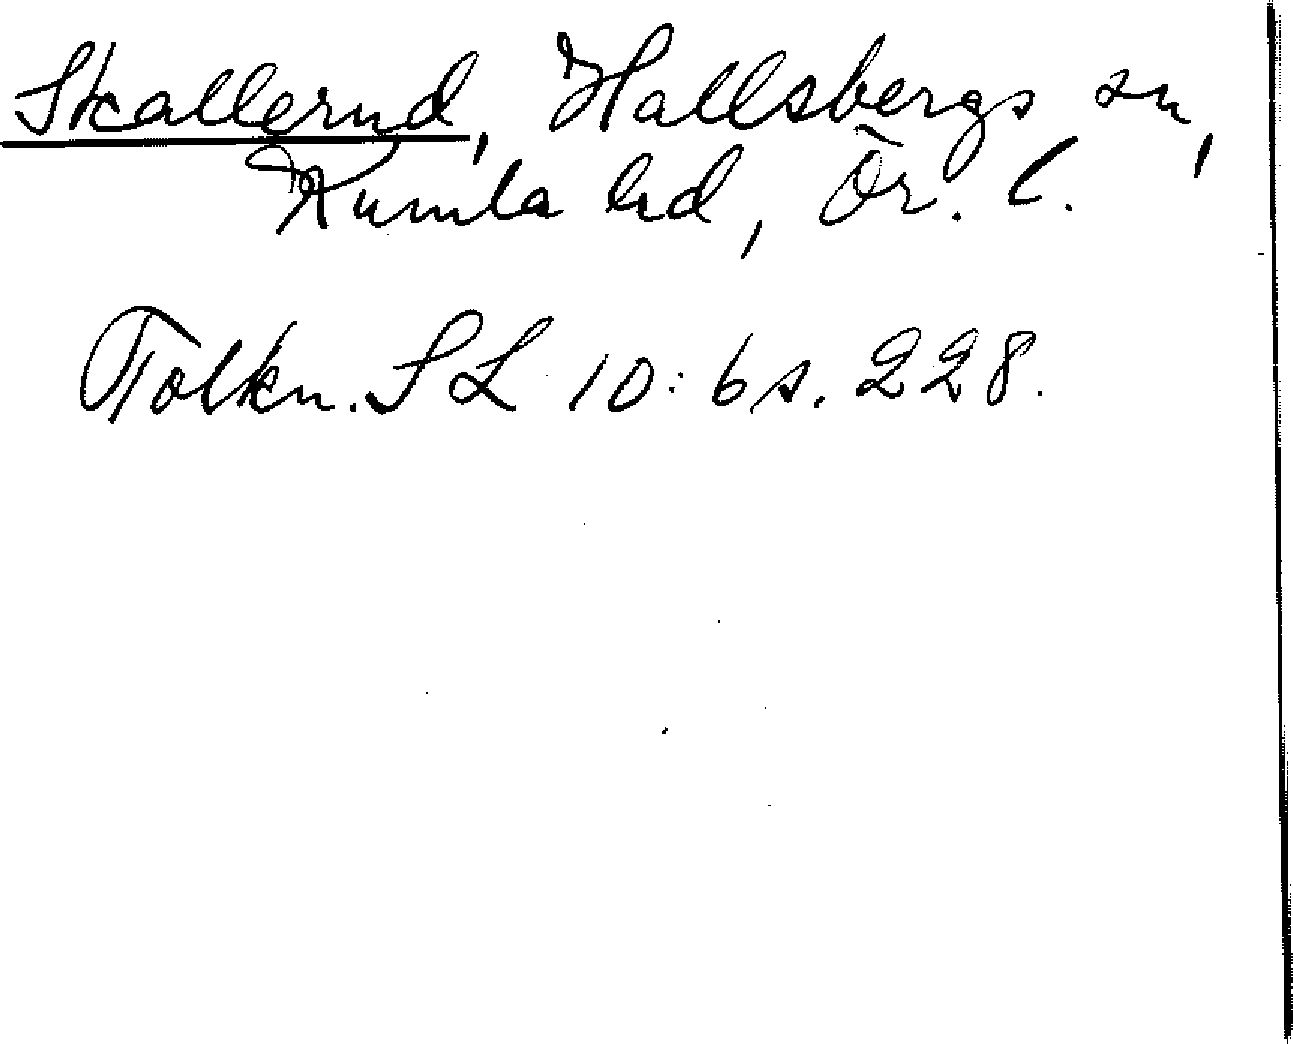 Skallerud, Hallsbergs sn,
Kumla hd, Ör. l.
Tolkn. SL 10:6 s. 228.